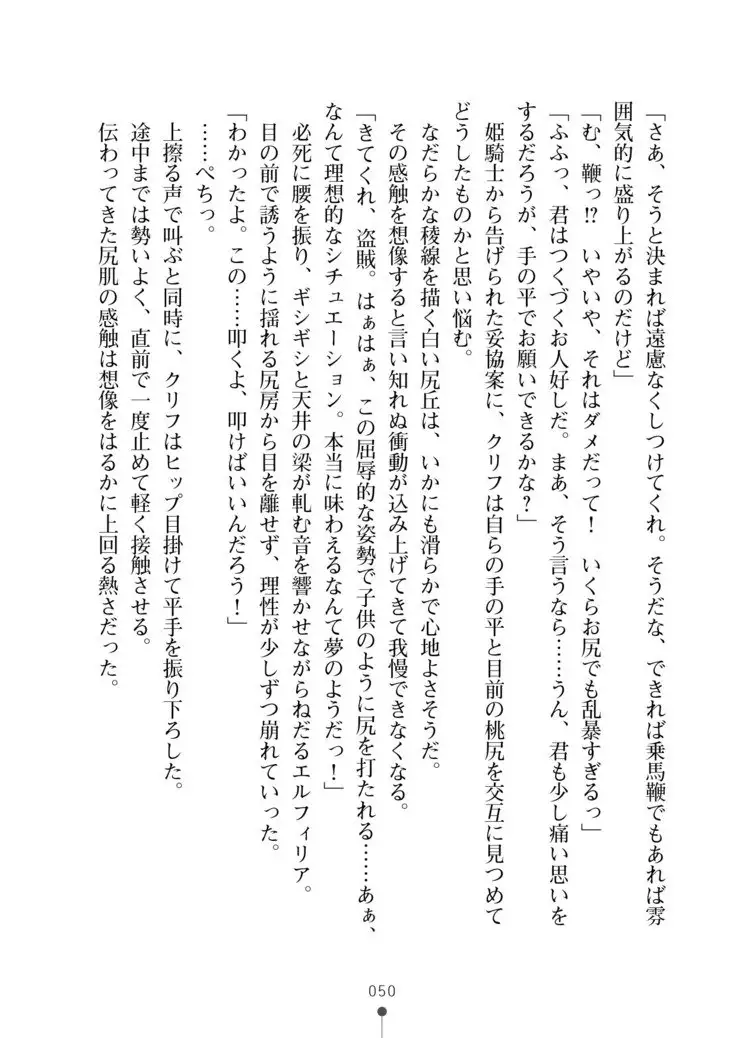 「さあ、そうと決まれば遠慮なくしつけてくれ。そうだな、できれば乗馬鞭でもあれば雰
囲気的に盛り上がるのだけど」
「む、鞭っ!?　いやいや、それはダメだって！　いくらお尻でも乱暴すぎるっ」
「ふふっ、君はつくづくお人好しだ。まあ、そう言うなら……うん、君も少し痛い思いを
するだろうが、手の平でお願いできるかな？」
　姫騎士から告げられた妥協案に、クリフは自らの手の平と目前の桃尻を交互に見つめて
どうしたものかと思い悩む。
　なだらかな稜線を描く白い尻丘は、いかにも滑らかで心地よさそうだ。
　その感触を想像すると言い知れぬ衝動が込み上げてきて我慢できなくなる。
「きてくれ、盗賊。はぁはぁ、この屈辱的な姿勢で子供のように尻を打たれる……あぁ、
なんて理想的なシチュエーション。本当に味わえるなんて夢のようだっ！」
　必死に腰を振り、ギシギシと天井の梁が軋む音を響かせながらねだるエルフィリア。
　目の前で誘うように揺れる尻房から目を離せず、理性が少しずつ崩れていった。
「わかったよ。この……叩くよ、叩けばいいんだろう！」
　……ぺちっ。
　上擦る声で叫ぶと同時に、クリフはヒップ目掛けて平手を振り下ろした。
　途中までは勢いよく、直前で一度止めて軽く接触させる。
　伝わってきた尻肌の感触は想像をはるかに上回る熱さだった。
050